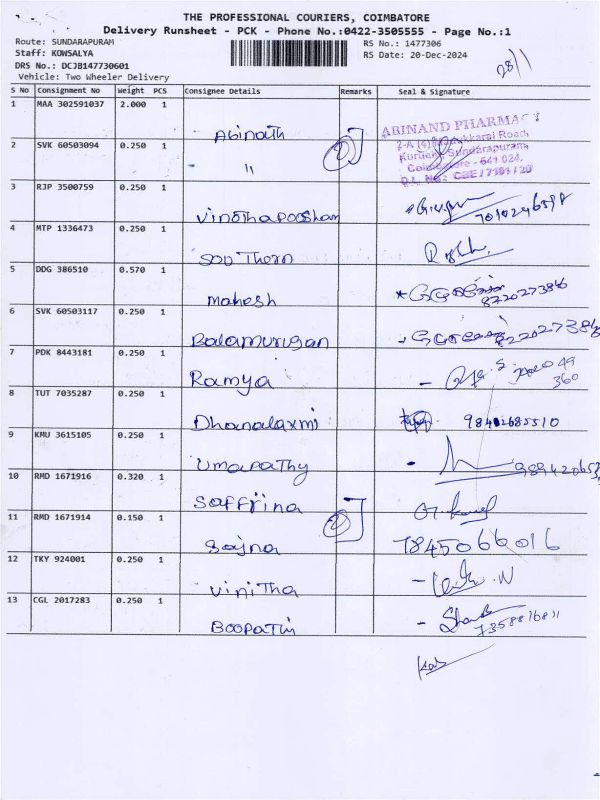 THE PROFESSIONAL COURIERS, COIMBATORE
Delivery Runsheet - PCK - Phone No.:0422-3505555 - Page No.:1
Route: SUNDARAPURAM
Staff: KOWSALYA
DRS No.: DCJB147730601
Vehicle: Two Wheeler Delivery
RS No.: 1477306
RS Date: 20-Dec-2024
28/1
S No Consignment No Weight PCS Consignee Details Remarks Seal & Signature
1 MAA 302591037 2.000 1 Abinath
ABINAND PHARMACY
2 SVK 60503094 0.250 1 " 2
Sundarapuram,
Coimbatore - 641 024.
D.L. No: CBE / 7101 / 20
3 RJP 3500759 0.250 1 Vinothapoosham
4 MTP 1336473 0.250 1 Southern
5 DDG 386510 0.570 1 Mahesh
6 SVK 60503117 0.250 1 Balamurugan
7 PDK 8443181 0.250 1 Ramya
8 TUT 7035287 0.250 1 Dhanalaxmi 98402685510
9 KMU 3615105 0.250 1 Umapathy
10 RMD 1671916 0.320 1 Saffrina
11 RMD 1671914 0.150 1 Sajna 2 7845066016
12 TKY 924001 0.250 1 Vinitha
13 CGL 2017283 0.250 1 Boopathi